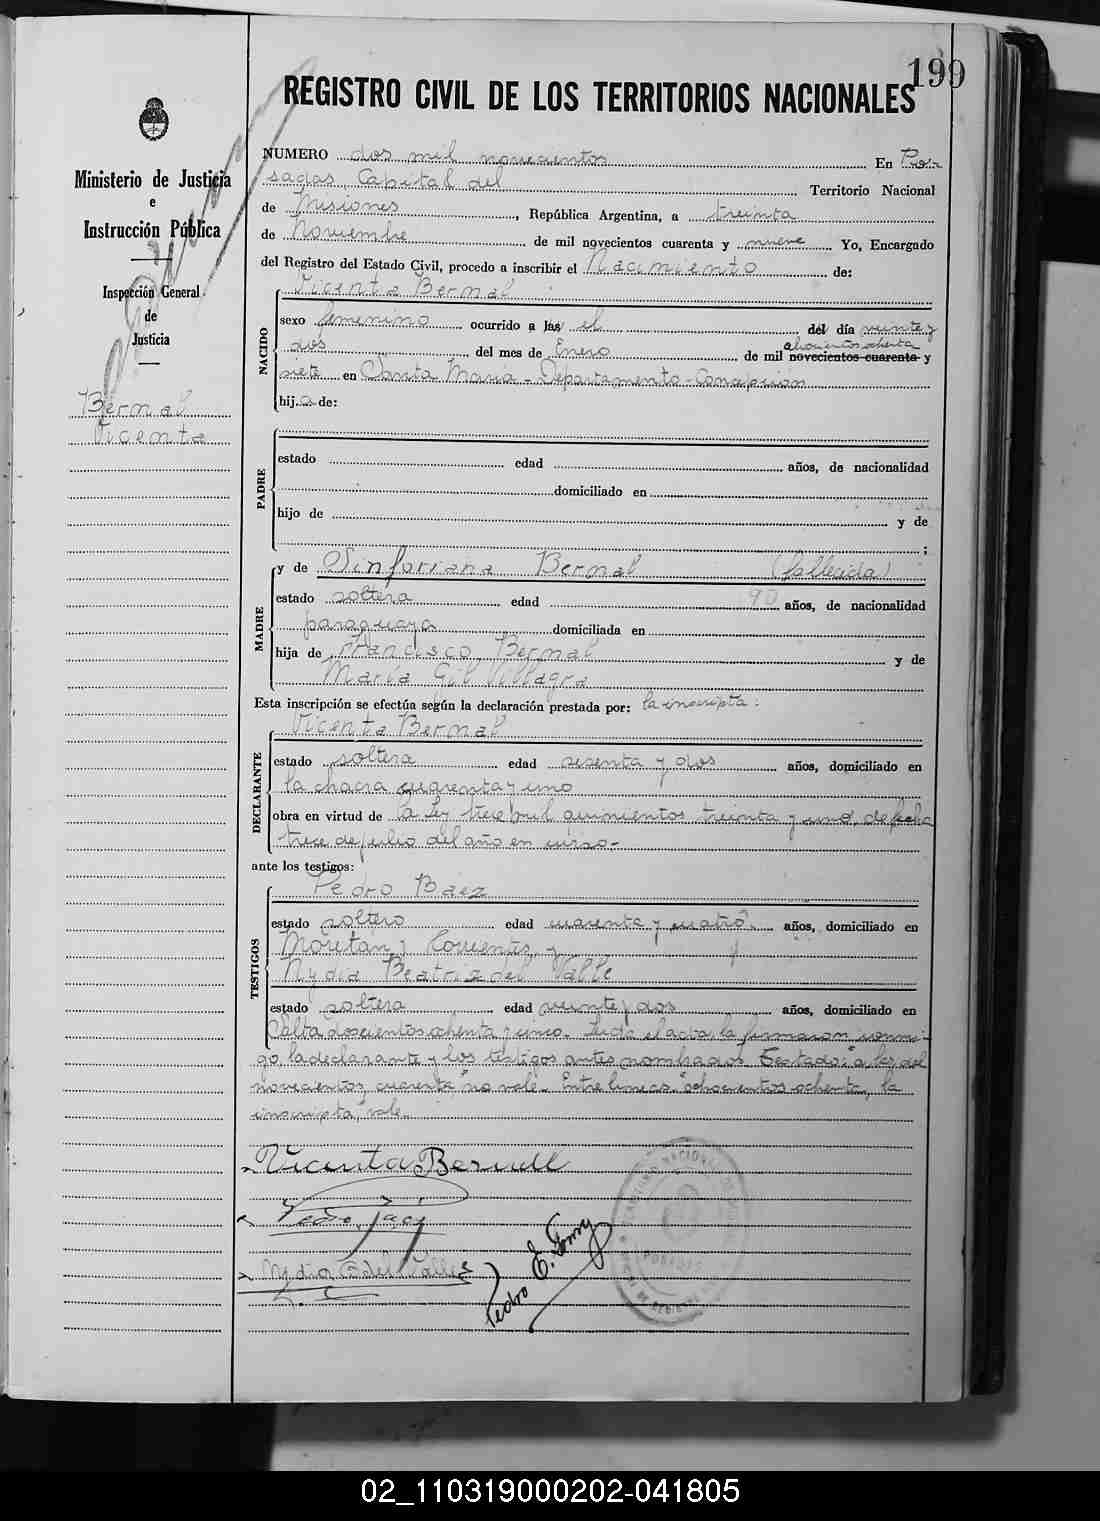 199
REGISTRO CIVIL DE LOS TERRITORIOS NACIONALES
Ministerio de Justicia
e
Instrucción Pública
Inspección General
de
Justicia
Bernal
Vicenta
NUMERO dos mil novecientos En Po-
sadas, Capital del Territorio Nacional
de Misiones, República Argentina, a treinta
de Noviembre de mil novecientos cuarenta y nueve Yo, Encargado
del Registro del Estado Civil, procedo a inscribir el Nacimiento de:
NACIDO
Vicenta Bernal
sexo femenino ocurrido a las el del día veinte y
ochocientos ochenta
dos del mes de Enero de mil novecientos cuarenta y
siete en Santa María - Departamento - Concepción
hija de:
PADRE
estado edad años, de nacionalidad
domiciliado en
hijo de y de
;
MADRE
y de Sinforiana Bernal (fallecida)
estado soltera edad 90 años, de nacionalidad
paraguaya domiciliada en
hija de Francisco Bernal y de
María Gil Villagra
Esta inscripción se efectúa según la declaración prestada por: la inscripta:
DECLARANTE
Vicenta Bernal
estado soltera edad sesenta y dos años, domiciliado en
la chacra cuarenta y uno
obra en virtud de la Ley trece mil quinientos treinta y uno, de fecha
trece de julio del año en curso.-
ante los testigos:
TESTIGOS
Pedro Báez
estado soltero edad cuarenta y cuatro años, domiciliado en
Moritan y Corrientes, y
Nydia Beatriz del Valle
estado soltera edad veinte y dos años, domiciliado en
Salta doscientos ochenta y uno. Leída el acta, la firmaron conmi-
go, la declarante y los testigos antes nombrados. Testado: "a las, del
novecientos cuarenta", no vale. Entre líneas "ochocientos ochenta, la
inscripta", vale.
Vicenta Bernall
Nydia B del Valle
Pedro E.
02_110319000202-041805